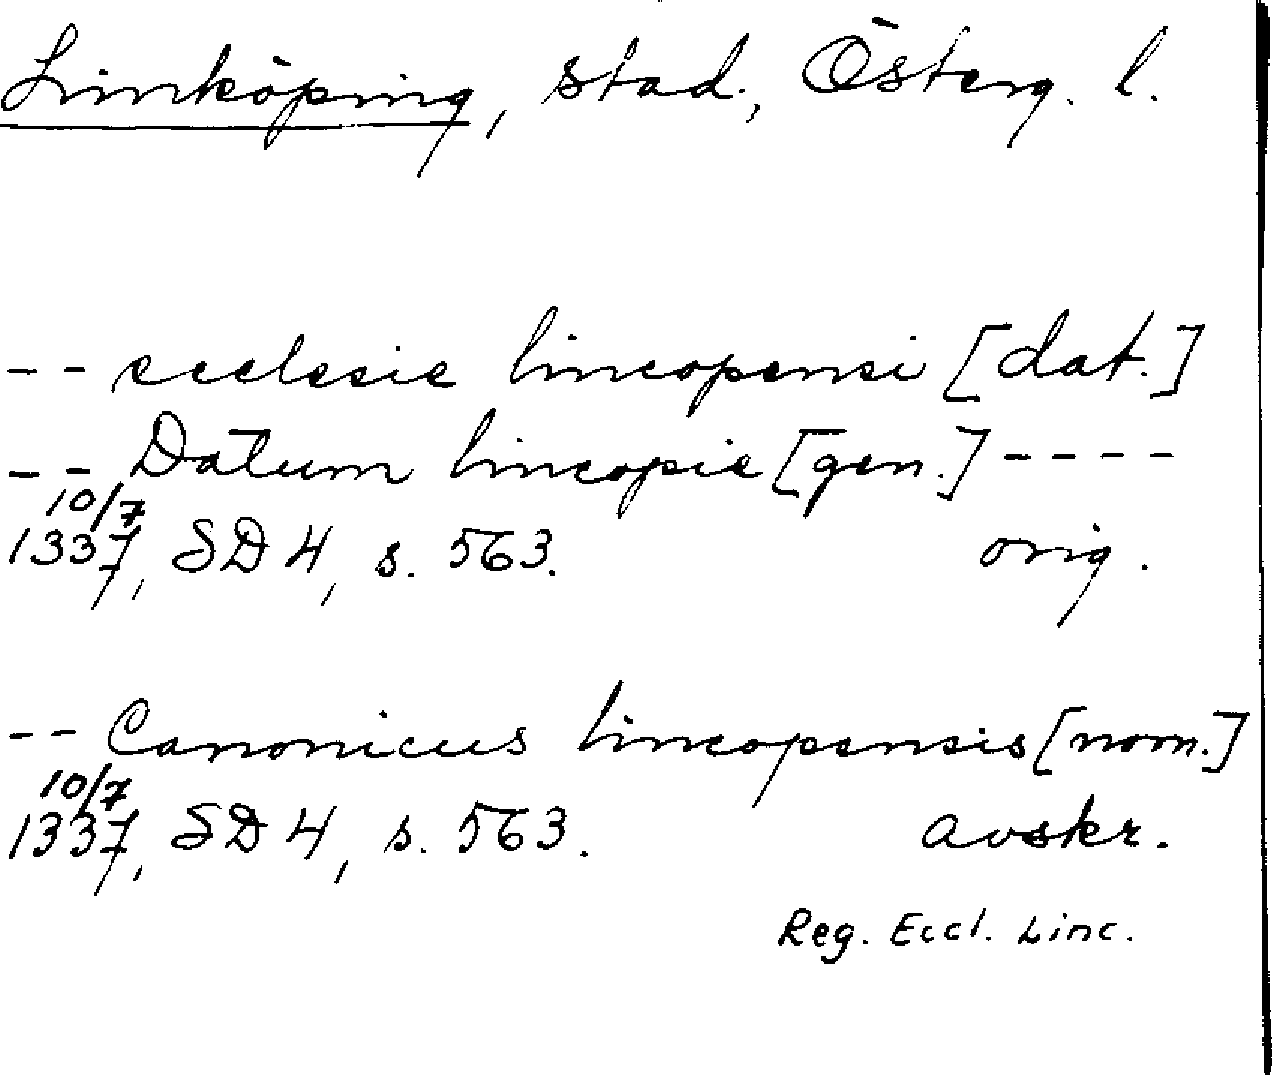 Linköping, stad, Österg. l.
-- ecclesie lincopensi [dat.]
-- Datum lincopie [gen.] ----
10/7
1337, SD 4, s. 563. orig.
-- Canonicus lincopensis [nom.]
10/7
1337, SD 4, s. 563. avskr.
Reg. Eccl. Linc.